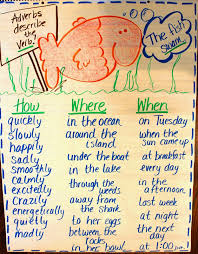 Adverbs
describe
the
Verb!
The fish
swam...
How Where When
quickly in the ocean on Tuesday
slowly around the island when the sun came up
happily
sadly under the boat at breakfast
smoothly in the lake every day
calmly
excitedly through the weeds in the afternoon
crazily away from the shark last week
energetically at night
quietly to her eggs the next day
madly between the rocks
in her bowl at 1:00pm!